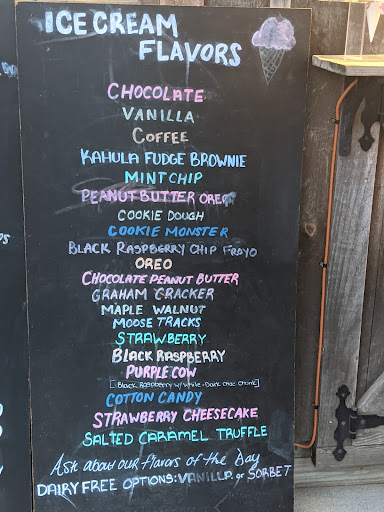 ICE CREAM
FLAVORS
CHOCOLATE
VANILLA
COFFEE
KAHULA FUDGE BROWNIE
MINT CHIP
PEANUT BUTTER OREO
COOKIE DOUGH
COOKIE MONSTER
BLACK RASPBERRY CHIP FROYO
OREO
CHOCOLATE PEANUT BUTTER
GRAHAM CRACKER
MAPLE WALNUT
MOOSE TRACKS
STRAWBERRY
BLACK RASPBERRY
PURPLE COW
[Black Raspberry w/ White + Dark Choc Chunk]
COTTON CANDY
STRAWBERRY CHEESECAKE
SALTED CARAMEL TRUFFLE
Ask about our flavors of the Day
DAIRY FREE OPTIONS: VANILLA or SORBET